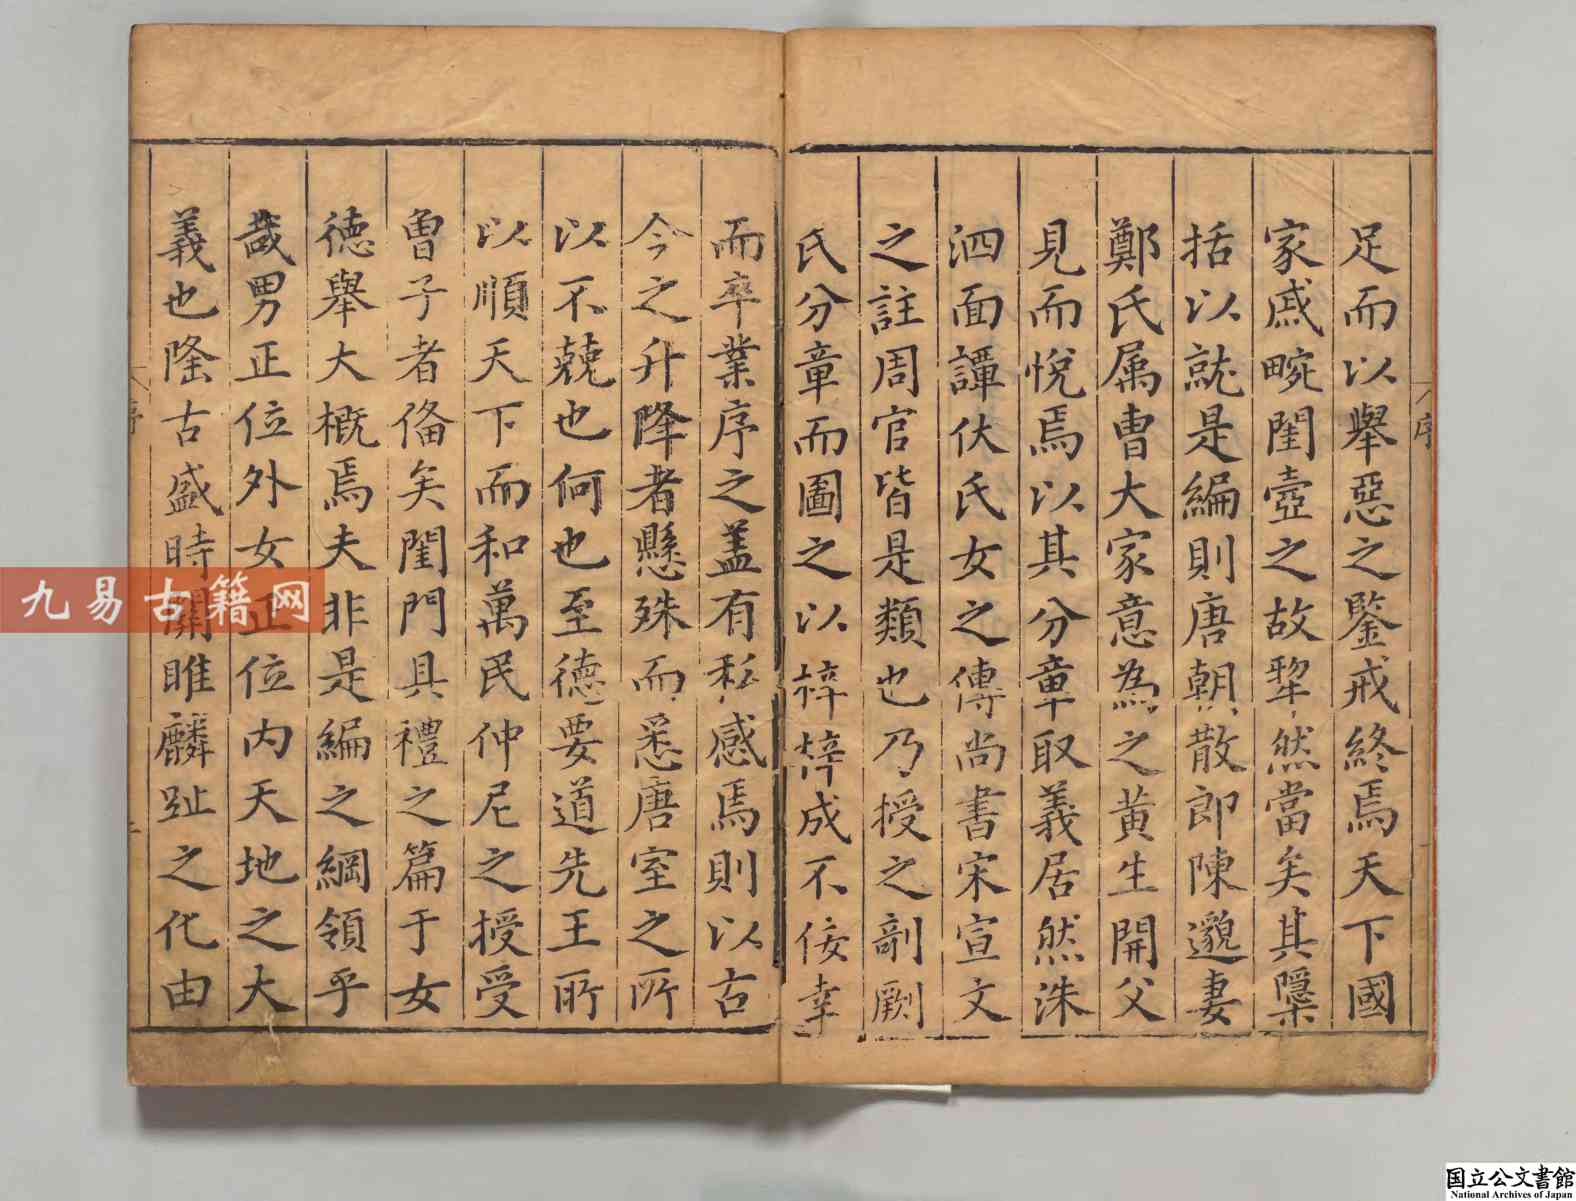 足而以舉惡之鑒戒終焉天下國
家戚畹閨壼之故犂然當矣其隱
括以就是編則唐朝散郎陳邈妻
鄭氏属曹大家意為之黄生開父
見而悅焉以其分章取義居然洙
泗面譚伏氏女之傳尚書宋宣文
之註周官皆是類也乃授之剞劂
氏分章而圖之以梓梓成不佞幸
而卒業序之盖有私感焉則以古
今之升降者懸殊而悉唐室之所
以不兢也何也至德要道先王所
以順天下而和萬民仲尼之授受
曾子者俻矣閨門具禮之篇于女
德舉大概焉夫非是編之綱領乎
哉男正位外女正位内天地之大
義也隆古盛時關雎麟趾之化由
序
序
九易古籍网
国立公文書館
National Archives of Japan